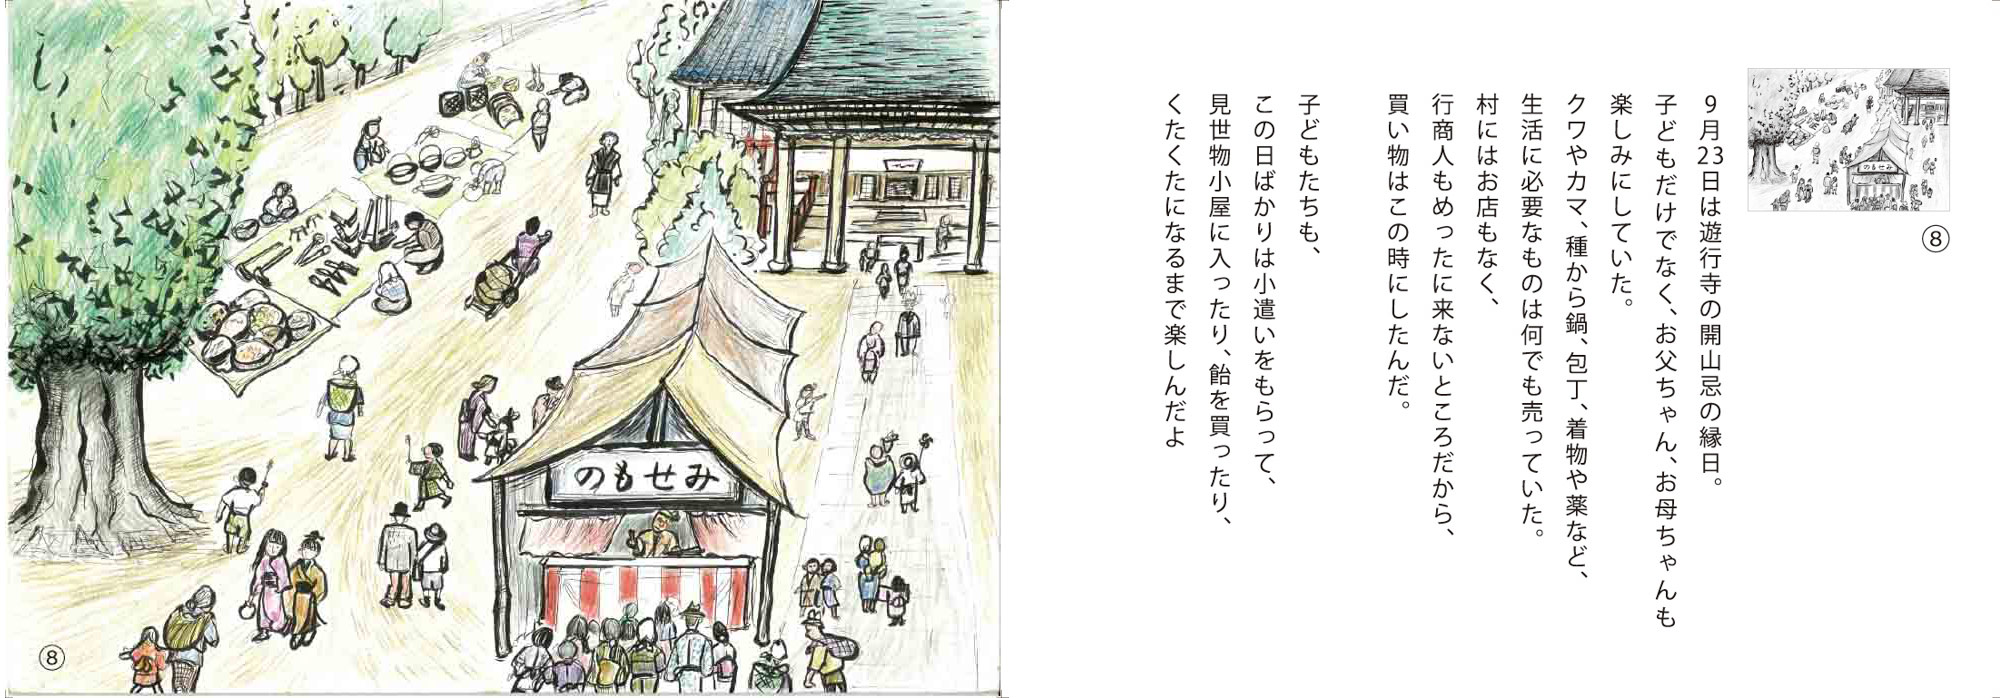 のもせみ
⑧
⑧
9月23日は遊行寺の開山忌の縁日。
子どもだけでなく、お父ちゃん、お母ちゃんも
楽しみにしていた。
クワやカマ、種から鍋、包丁、着物や薬など、
生活に必要なものは何でも売っていた。
村にはお店もなく、
行商人もめったに来ないところだから、
買い物はこの時にしたんだ。
子どもたちも、
この日ばかりは小遣いをもらって、
見世物小屋に入ったり、飴を買ったり、
くたくたになるまで楽しんだよ